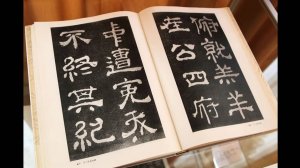 俯就羔羊
在公四府
中遭寃夭
不終其紀